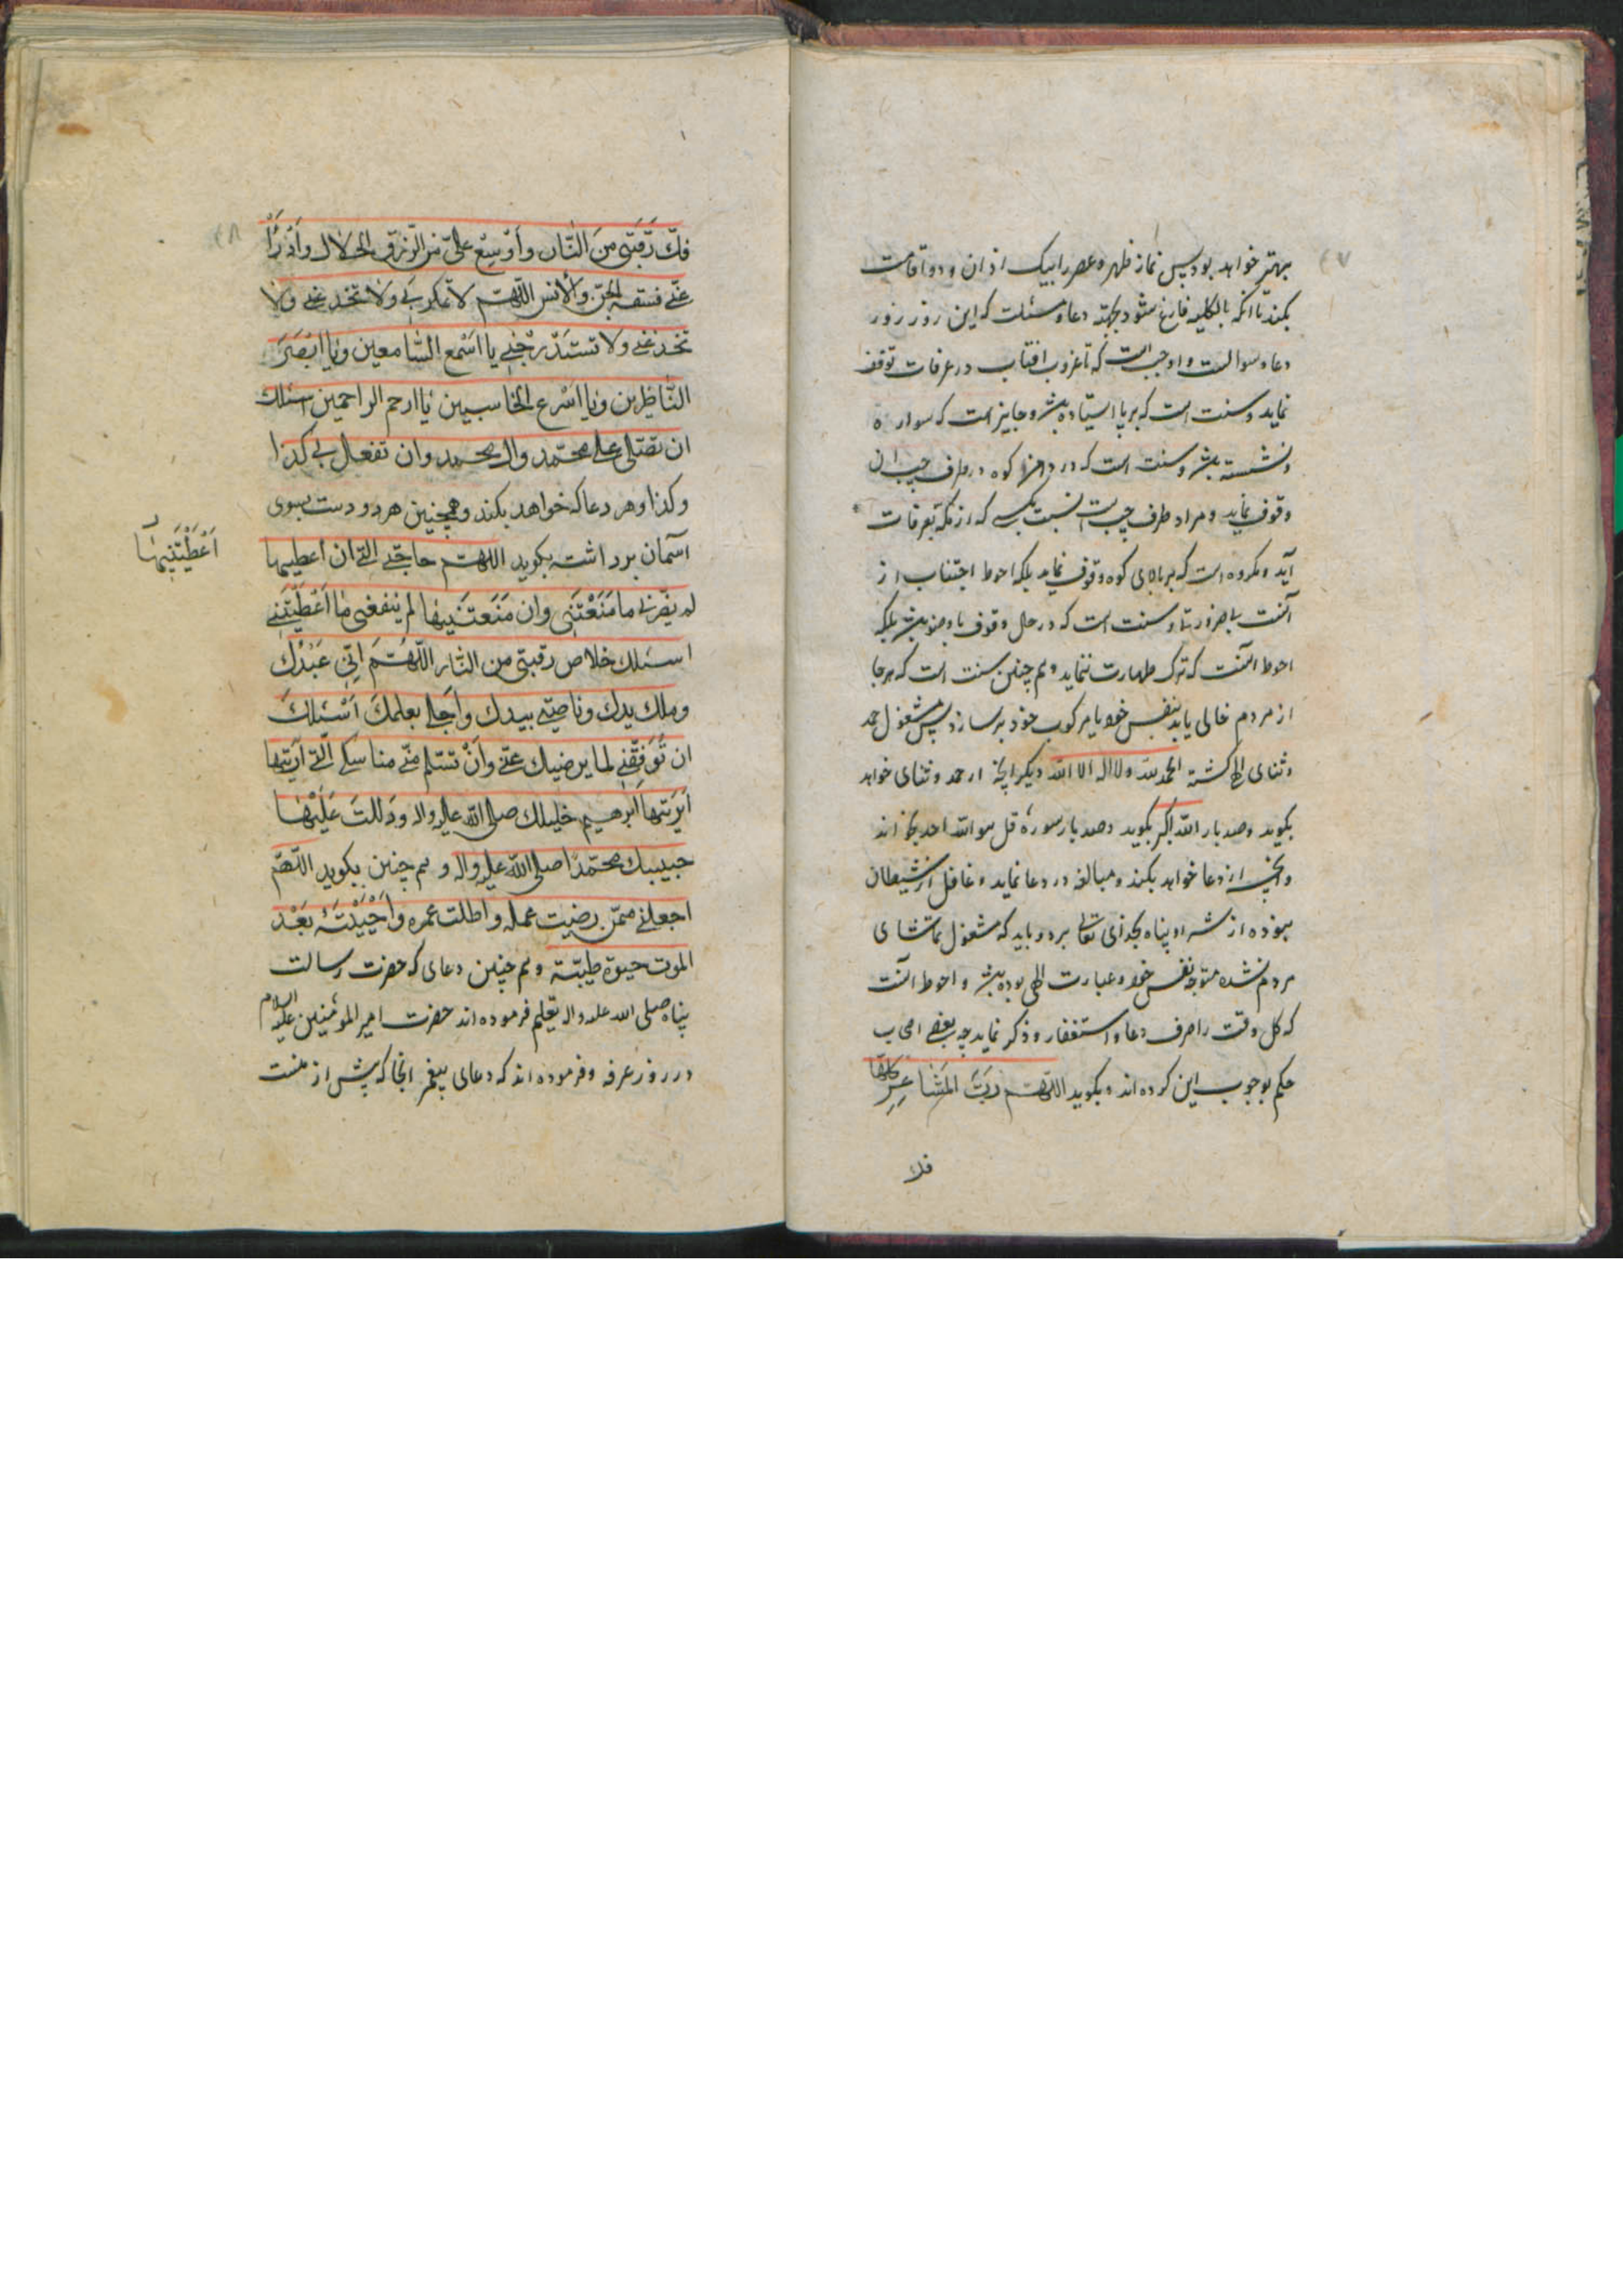 ۴۷
بهتر خواهد بود پس نماز ظهر و عصر را بیک اذان و دو اقامت
بکند تا آنکه بالکلیه فارغ شود بجهة دعا و مسئلت که این روز روز
دعا و سوالست و واجب است که تا غروب افتاب در عرفات توقف
نماید و سنت است که بر پا ایستاده باشد و جایز است که سواره
و نشسته باشد و سنت است که در کوه در طرف چپ ان
وقوف نماید و مراد طرف چپ است نسبت بکسی که از مکه بعرفات
آید و مکروه است که بر بالای کوه وقوف نماید بلکه احوط اجتناب از
آنست بلا ضرورتا و سنت است که در حال وقوف با وضو باشد بلکه
احوط آنست که ترک طهارت ننماید و هم چنین سنت است که هر جا
از مردم خالی یابد بنفس خود یا مرکوب خود پر سازد پس مشغول حمد
و ثنای الهی گشته الحمد لله ولا اله الا الله دیگر آنچه از حمد و ثنای خواهد
بگوید و صد بار الله اکبر بگوید و صد بار سوره قل هو الله احد بخواند
و آنچه از دعا خواهد بکند و مبالغه در دعا نماید و غافل از شیطان
نبوده از شر او پناه بخدای تعالی برد و باید که مشغول تماشای
مردم نشده متوجه نفس خود و عبادت الهی بوده باشد و احوط آنست
که کل وقت را صرف دعا و استغفار و ذکر نماید چه بعضی اصحاب
حکم بوجوب این کرده اند و بگوید اللهم رَبَّ المَشَاعِرِ کلها
فك
۴۸
فكّ رَقَبَتی مِنَ النّار وأَوْسِعْ علیّ من الرّزق الحلال وَادْرَأْ
عنّی فسقه الجنّ والأنس اللّهمّ لا تمکر بی ولا تخدعنی ولا
تخدعنی ولا تستدرجنی یا اَسْمَع السّامعین ویا اَبْصَرَ
النّاظرین ویا اَسْرع الحاسبین یا ارحم الراحمین اسئلك
ان تصلّی علی محمّد وال محمد وان تفعل بی کذا
وکذا و هر دعا که خواهد بکند و همچنین هر دو دست بسوی
آسمان برداشته بگوید اللهم حاجتی الّتی ان اعطیها
اَعْطَیْتَنِیهَا
لم یضرنی ما مَنَعْتَنی وان مَنَعْتَنِیها لم یَنفعنی ما اَعْطَیْتَنی
اسئلك خلاص رقبتی من النّار اللّهُمَّ اِنّی عَبْدُك
وملك یدك وناصیتی بیدك وأجلی بعلمك اَسْئَلُكَ
ان تُوَفِّقَنی لما یرضیك عنّی وأَنْ تسّلم منّی مناسکی الّتی اَرَیْتَها
اَرَیْتَها اَبْرهیم خلیلك صلی الله علیه واله ودَلَلْتَ عَلَیْها
حبیبك محمّدًا صلی الله علیه واله و هم چنین بگوید اللّهمّ
اجعلنی ممّن رضیت عمله واطلت عمره واَحْیَیْتَهُ بَعْدَ
الموت حیوة طیّبة و هم چنین دعای که حضرت رسالت
پناه صلی الله علیه واله تعلیم فرموده اند حضرت امیر المؤمنین علیه السلام
در روز عرفه و فرموده اند که دعای پیغمبر که پیش از منست